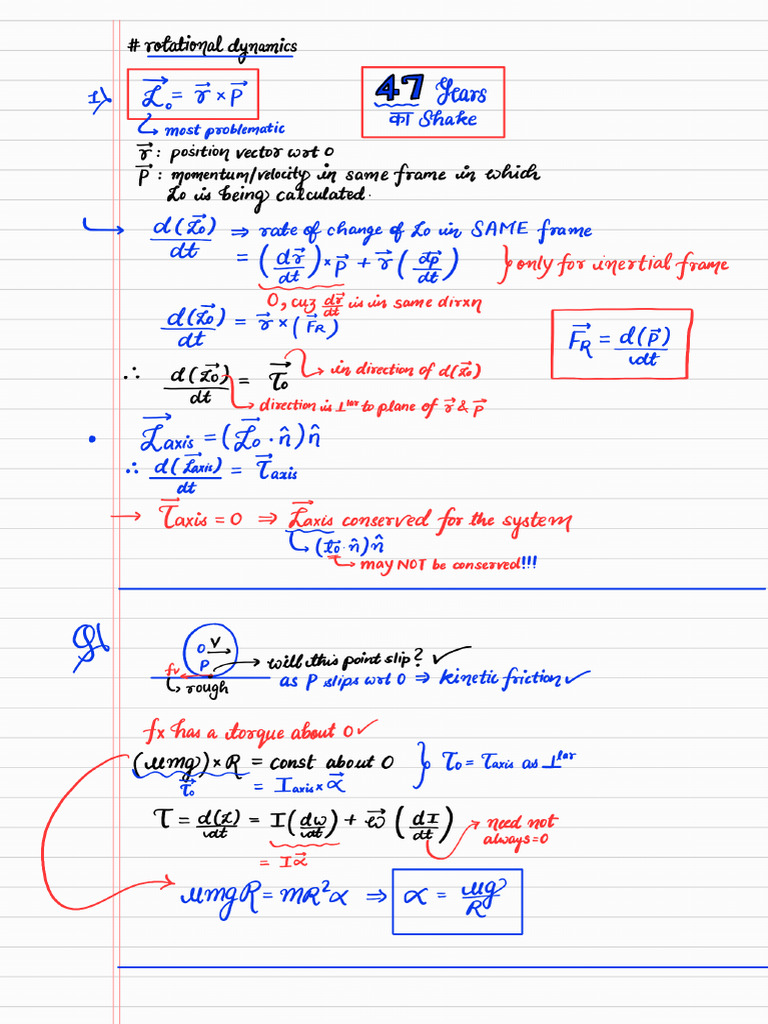 # rotational dynamics
1)
L⃗₀ = r⃗ × p⃗
47 Years
का Shake
↳ most problematic
r⃗ : position vector wrt O
P⃗ : momentum/velocity in same frame in which
L₀ is being calculated.
↳ d(L⃗₀)/dt ⇒ rate of change of L₀ in SAME frame
= (dr⃗/dt) × p⃗ + r⃗ (dp⃗/dt) } only for inertial frame
0, cuz dr⃗/dt is in same dirxn
d(L⃗₀)/dt = r⃗ × (F⃗R)
F⃗R = d(p⃗)/dt
∴ d(L⃗₀)/dt = τ⃗₀ ↳ in direction of d(L⃗₀)
↳ direction is ⊥lar to plane of r⃗ & p⃗
• L⃗axis = (L⃗₀ · n̂) n̂
∴ d(L⃗axis)/dt = τ⃗axis
→ τ⃗axis = 0 ⇒ L⃗axis conserved for the system
↳ (L⃗₀ · n̂) n̂
↳ may NOT be conserved!!!
Q1
O V
P → will this point slip? ✓
fv
↳ rough
as P slips wrt O ⇒ kinetic friction ✓
fx has a torque about O ✓
(μmg) × R = const about O } τ₀ = τaxis as ⊥lar
τ⃗₀ = Iaxis × α⃗
τ = d(L)/dt = I(dω/dt) + ω⃗ (dI/dt) → need not
always = 0
= Iα⃗
μmgR = mR²α ⇒ α = μg/R